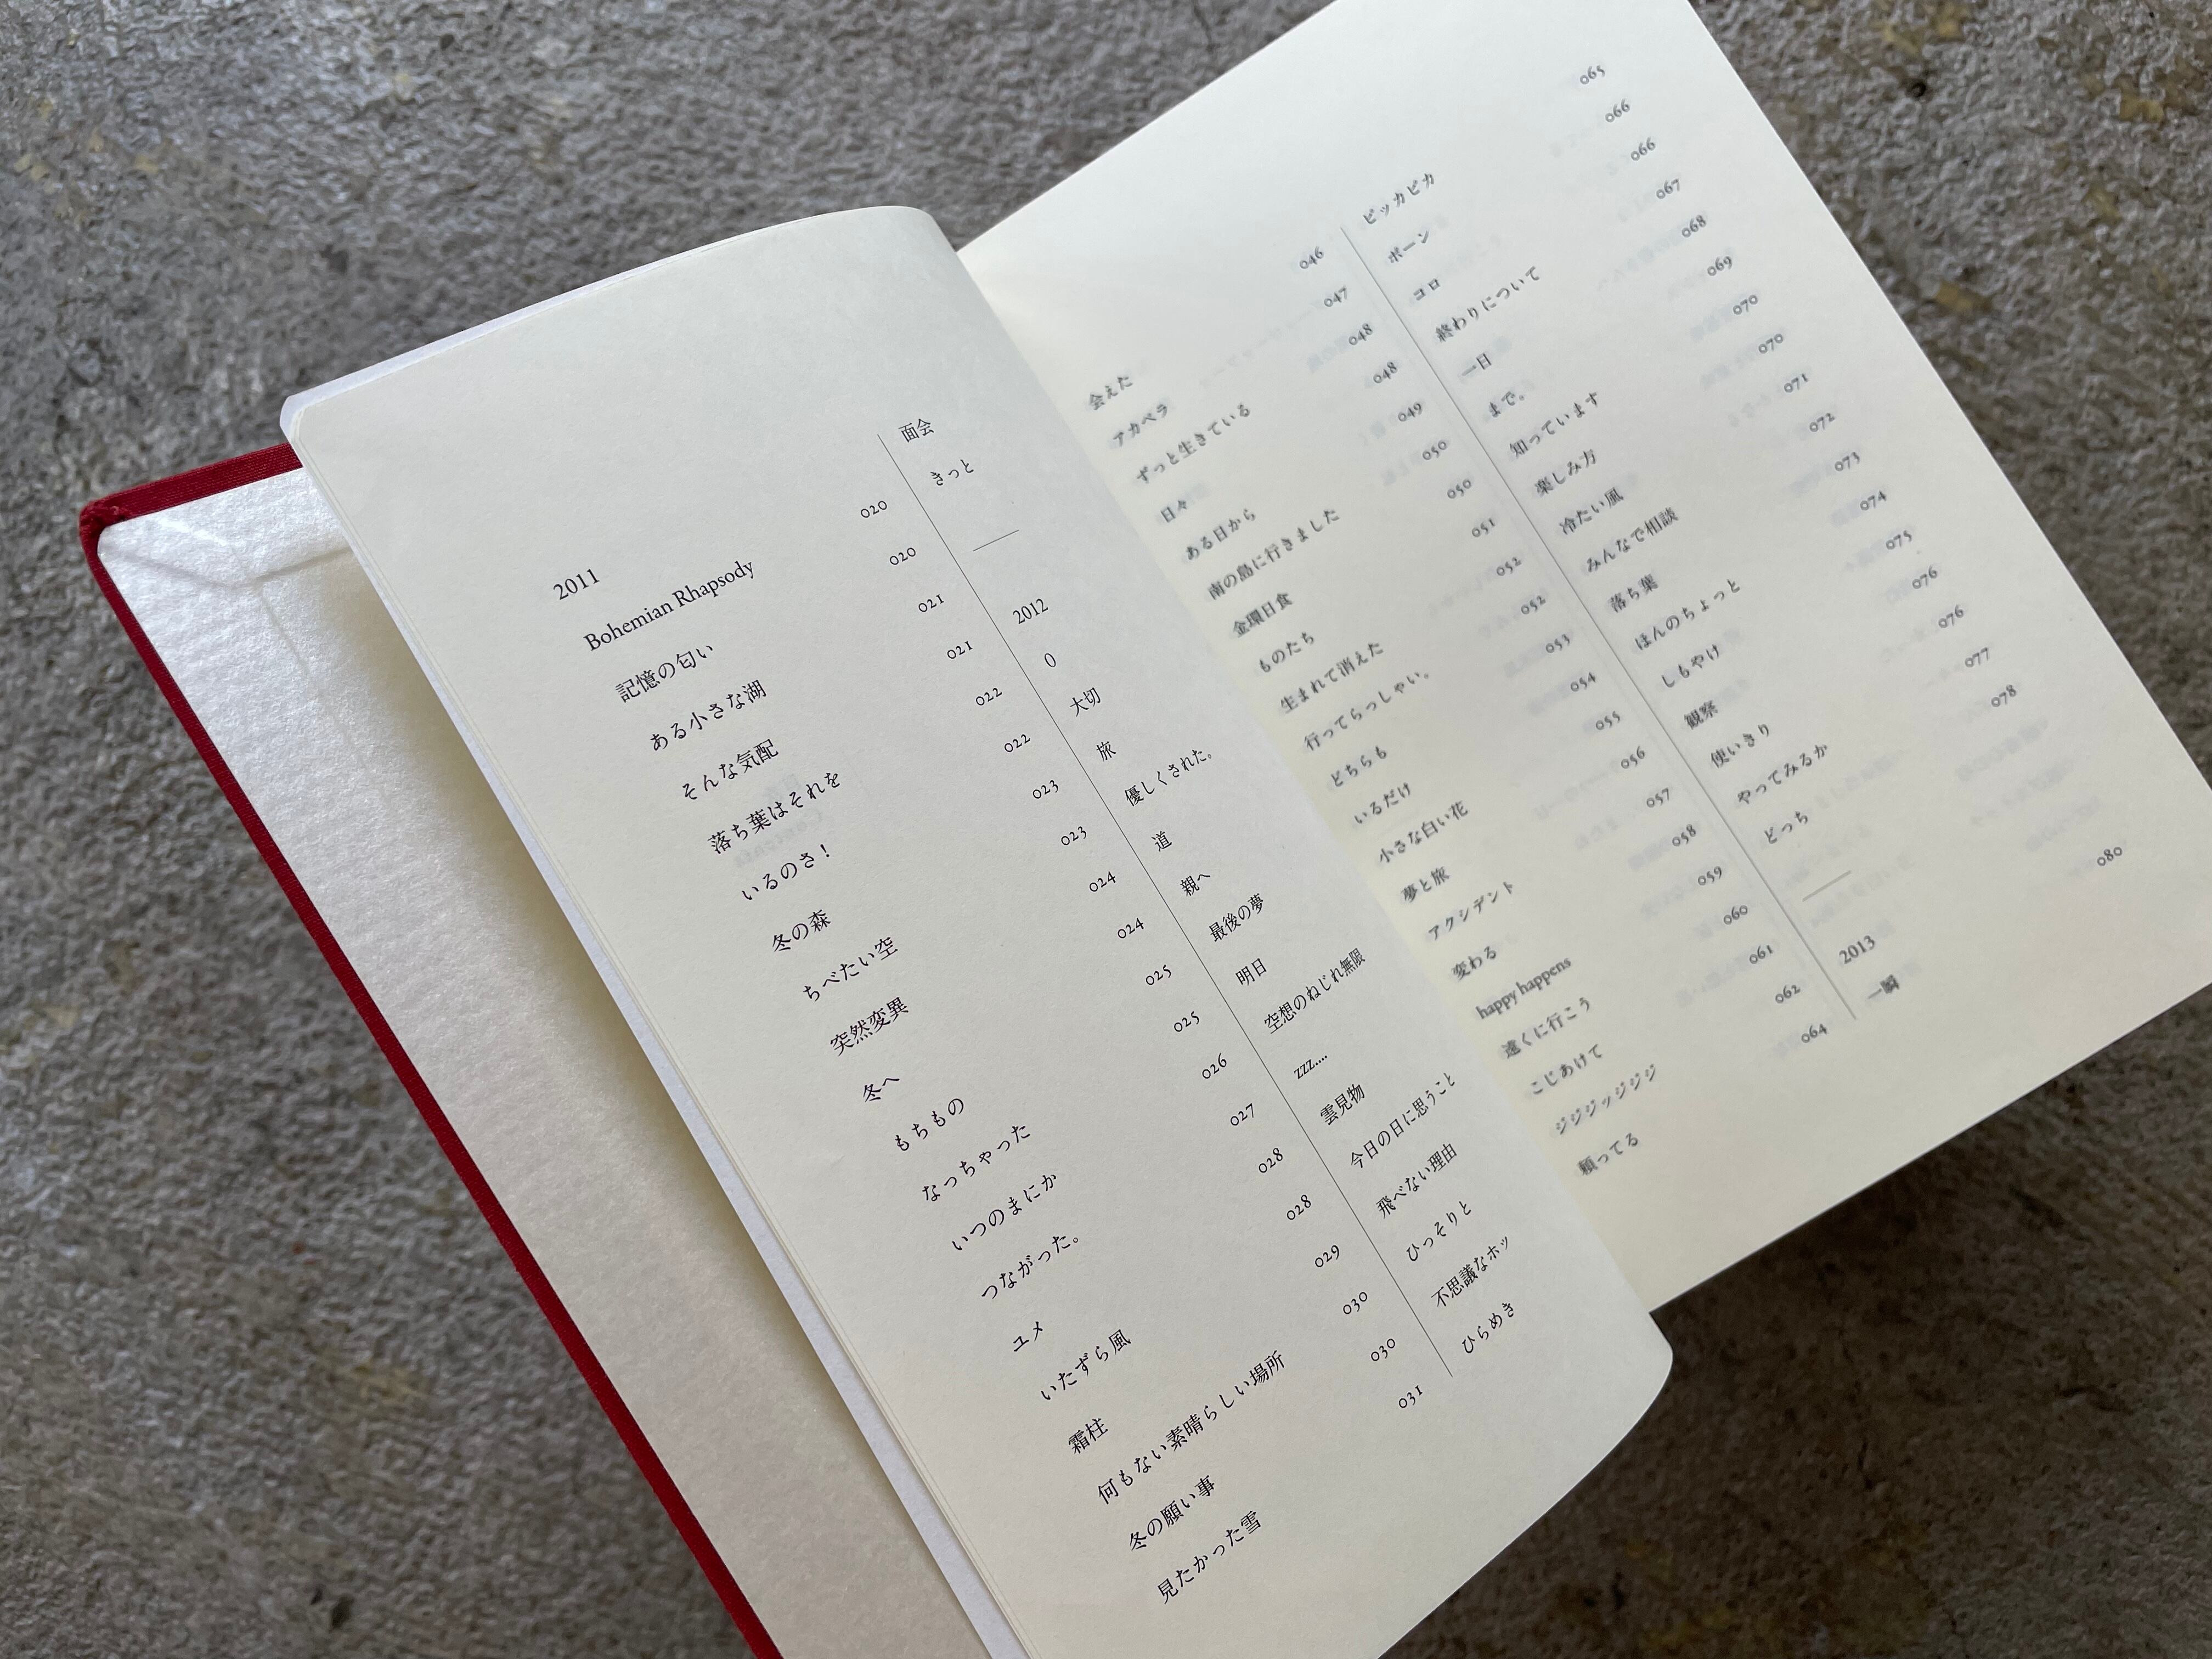 2011
Bohemian Rhapsody 020
記憶の匂い 020
ある小さな湖 021
そんな気配 021
落ち葉はそれを 022
いるのさ！ 022
冬の森 023
ちべたい空 023
突然変異 024
冬へ 024
もちもの 025
なっちゃった 025
いつのまにか 026
つながった。 027
ユメ 028
いたずら風 028
霜柱 029
何もない素晴らしい場所 030
冬の願い事 030
見たかった雪 031
面会
きっと
2012
0
大切
旅
優しくされた。
道
親へ
最後の夢
明日
空想のねじれ無限
zzz....
雲見物
今日の日に思うこと
飛べない理由
ひっそりと
不思議なホッ
ひらめき
会えた 046
アカペラ 047
ずっと生きている 048
日々 048
ある日から 049
南の島に行きました 050
金環日食 050
ものたち 051
生まれて消えた 052
行ってらっしゃい。 052
どちらも 053
いるだけ 054
小さな白い花 055
夢と旅 056
アクシデント 057
変わる 058
happy happens 059
遠くに行こう 060
こじあけて 061
ジジジッジジジ 062
願ってる 064
ピッカピカ 065
ポーン 066
コロ 066
終わりについて 067
一日 068
まで。 069
知っています 070
楽しみ方 070
冷たい風 071
みんなで相談 072
落ち葉 073
ほんのちょっと 074
しもやけ 075
観察 076
使いきり 076
やってみるか 077
どっち 078
2013
一瞬 080